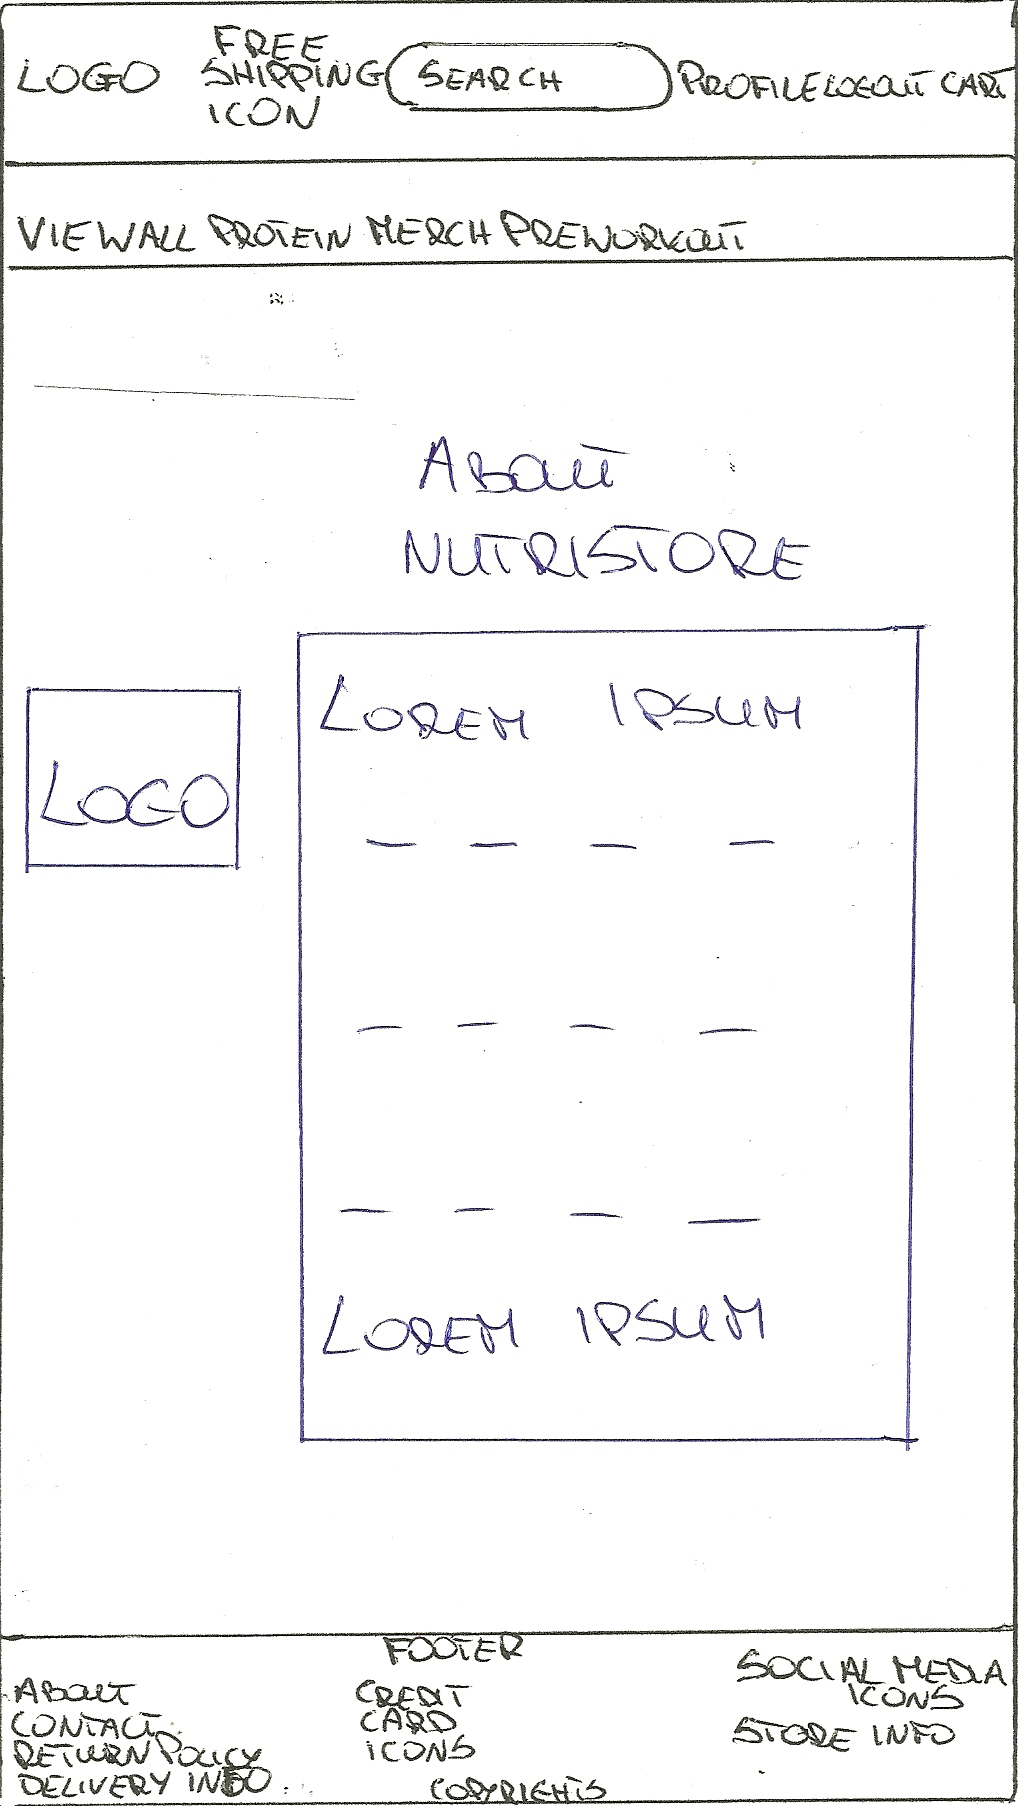 LOGO FREE SHIPPING ICON SEARCH PROFILE LOGOUT CART
VIEW ALL PROTEIN MERCH PREWORKOUT
ABOUT
NUTRISTORE
LOREM IPSUM
LOGO
LOREM IPSUM
FOOTER
ABOUT
CONTACT
RETURN POLICY
DELIVERY INFO
CREDIT
CARD
ICONS
COPYRIGHTS
SOCIAL MEDIA
ICONS
STORE INFO